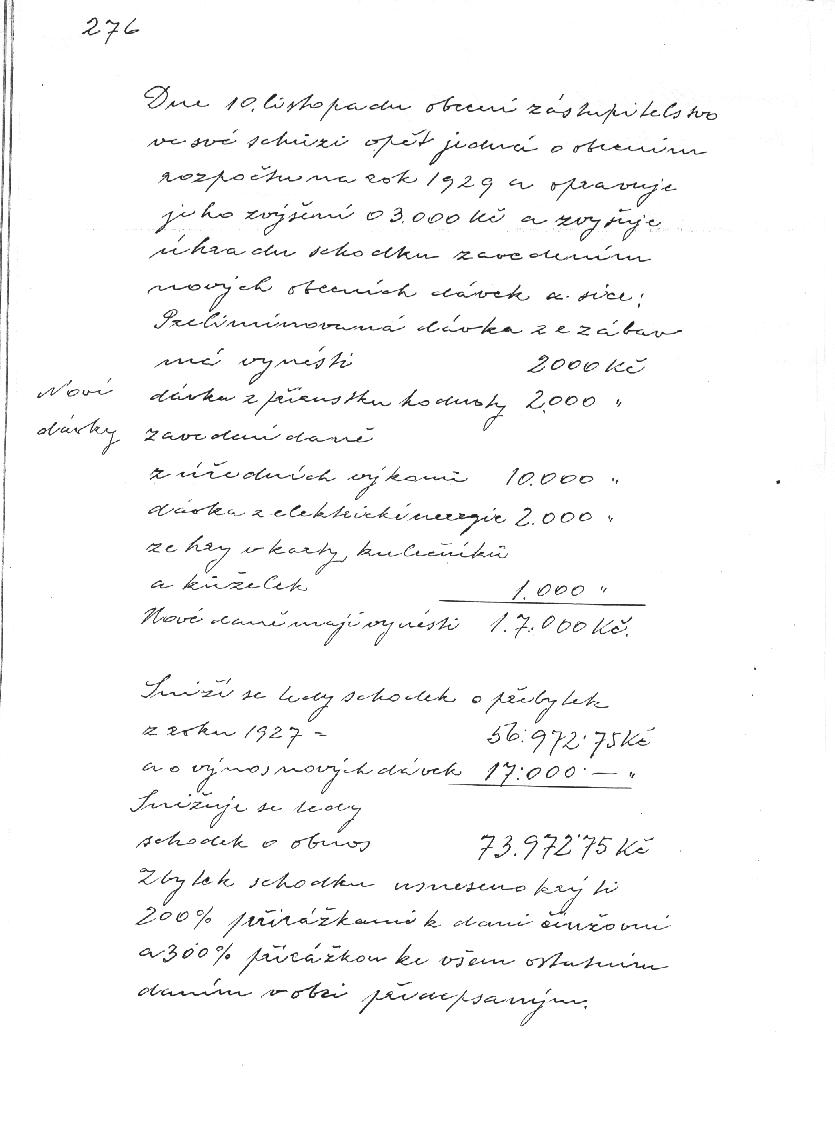 276
Dne 10. listopadu obecní zástupitelstvo
ve své schůzi opět jedná o obecním
rozpočtu na rok 1929 a opravuje
jeho zvýšení o 3.000 Kč a zvyšuje
úhradu schodku zavedením
nových obecních dávek a sice:
Preliminovaná dávka ze zábav
má vynésti 2000 Kč
Noví dávka z přírustku hodnoty 2.000 "
dávky zavedení daně
z úředních výkonů 10.000 "
dávka z elektrické energie 2.000 "
ze hry v karty, kulečníků
a kůželek 1.000 "
Nové daně mají vynésti 17.000 Kč.
Sníží se tedy schodek o přebytek
z roku 1927 - 56.972.75 Kč
a o výnos nových dávek 17.000.— "
Snižuje se tedy
schodek o obnos 73.972.75 Kč
Zbytek schodku usneseno krýti
200% přirážkami k dani činžovní
a 300% přirážkou ke všem ostatním
daním v obci předepsaným.